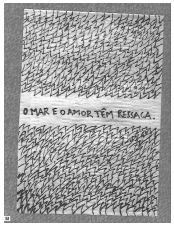 O MAR E O AMOR TÊM RESSACA.